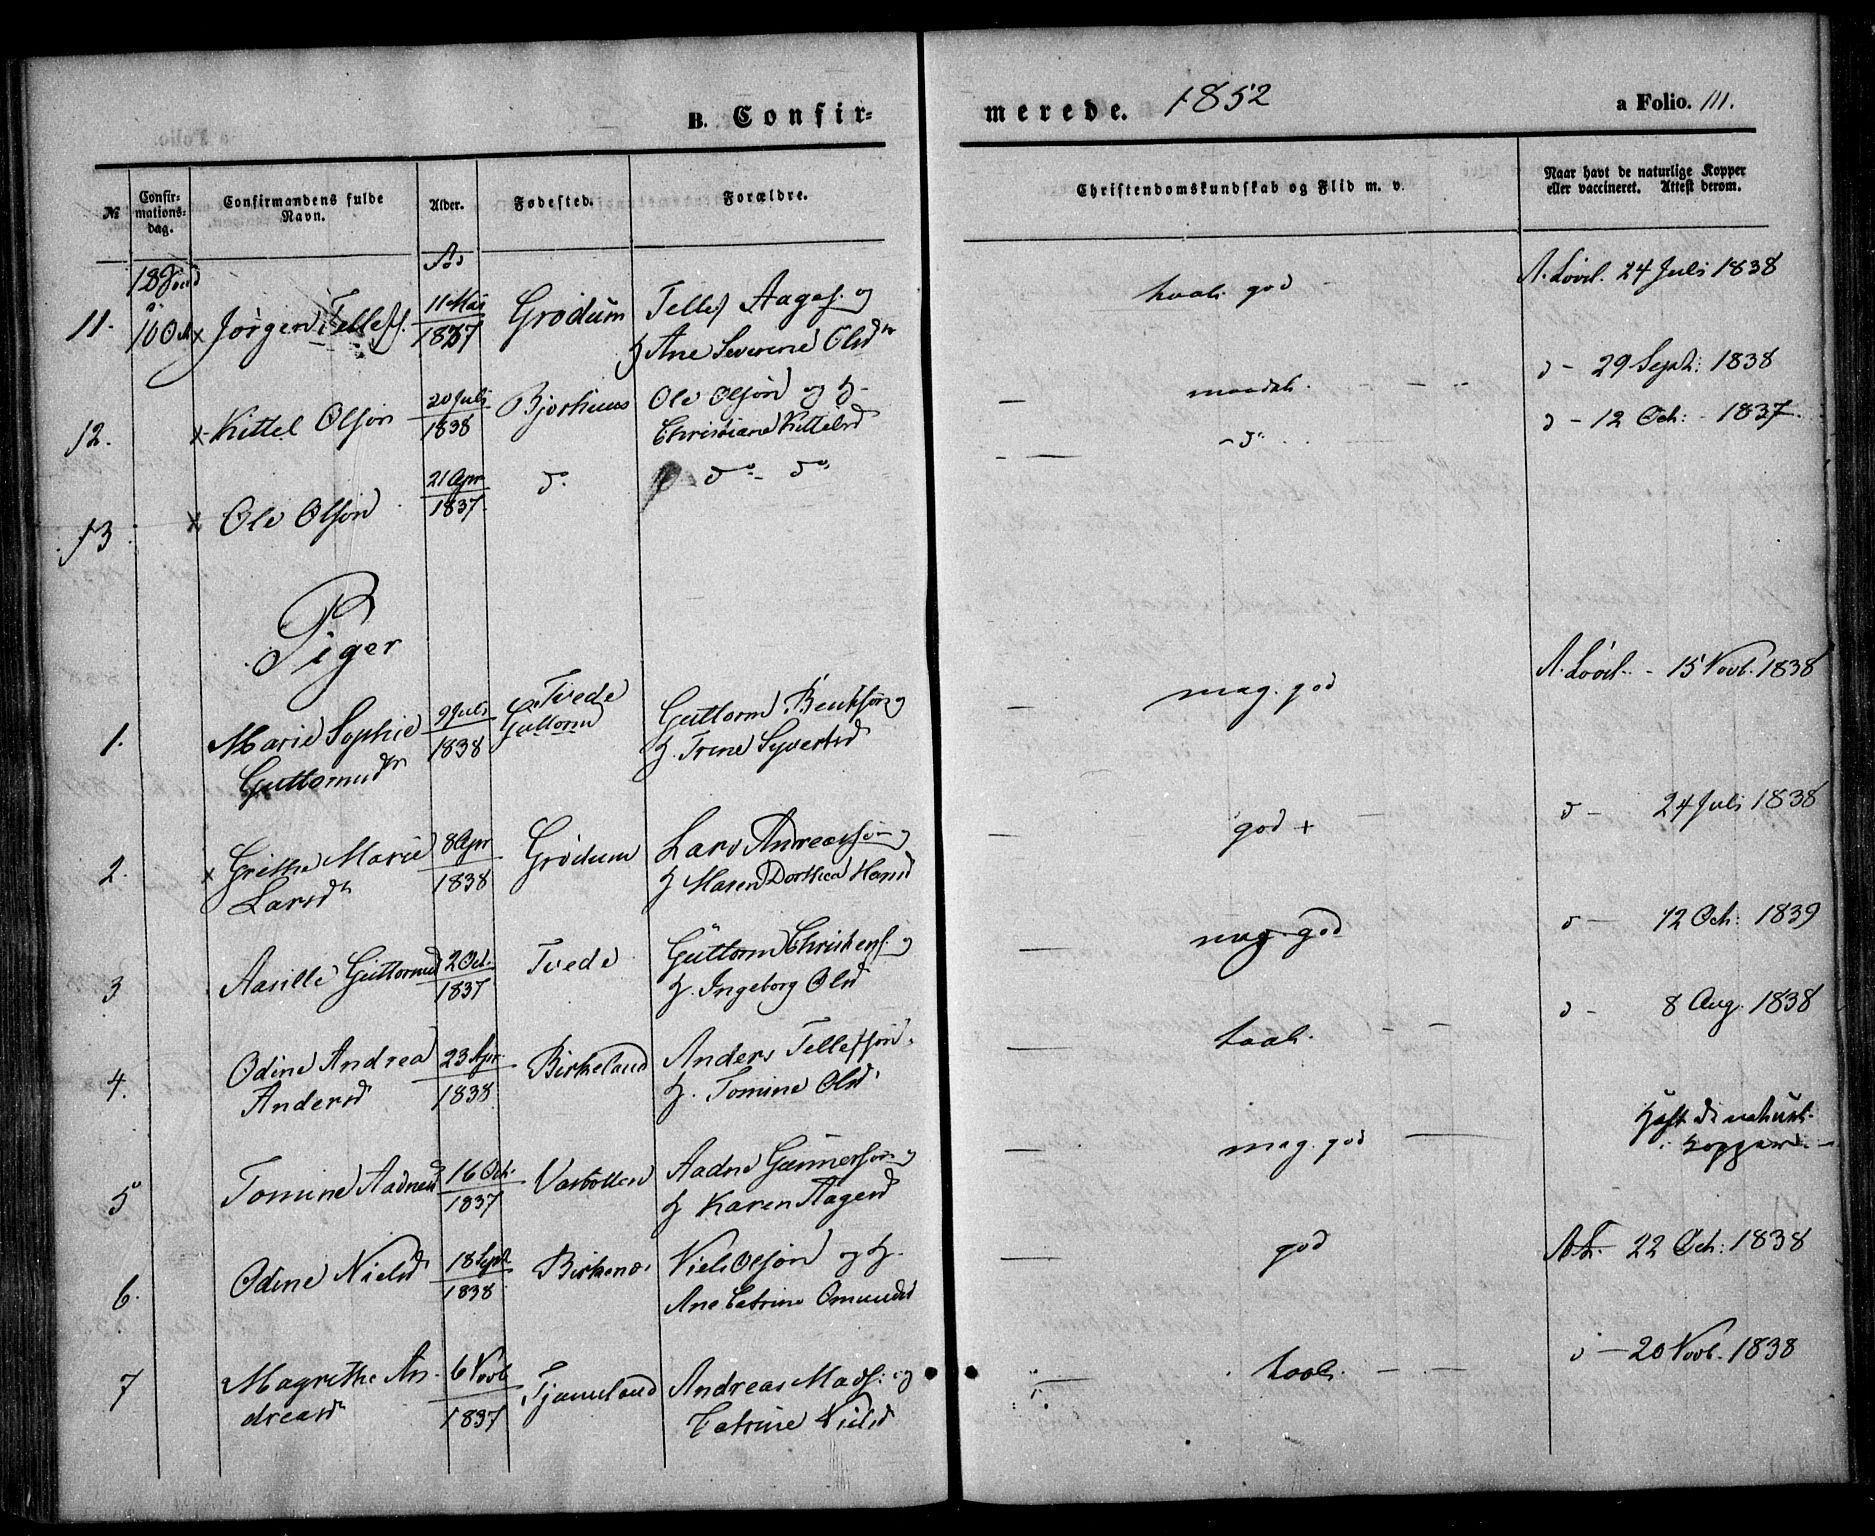 B. Confir-
merede. 1852
a Folio. 111.
№
Confir-
mations-
dag.
Confirmandens fulde
Navn.
Alder.
Fødested.
Forældre.
Christendomskundskab og Flid m. v.
Naar havt de naturlige Kopper
eller vaccineret. Attest derom.
18
10 Oct
11. x Jørgen Tellefs. 11 Mai 1837 Grødum Tellef Aages. og
H Ane Severine Olsd
taal. god
A. Løvel. 24 Juli 1838
12. x Kittel Olson 20 Juli 1838 Ole Olson og H.
Christiane Kittelsd
maadel.
d - 29 Sept: 1838
13 x Ole Olson 21 Apr 1837 do do - do
- do
d - 12 Oct: - 1837.
Piger
1. Marie Sophie
Guttormsd 9 Juli 1838 Tvede
Guttorm
H. Trine Syvertsd
mag. god
A. Løvel. - 15 Novb. 1838
2. x Grethe Marie
Larsd 8 Apr 1838 Grødum Lars Andreasson og
H Maren Dorthea Hansd
god +
d - 24 Juli 1838
3 Aasille Guttormsd 2 Oct. 1837 Tvede Guttorm Christens. og
H. Ingeborg Olsd
mag. god
d - 12 Oct: 1839
4. Odine Andrea
Andersd 23 Apr. 1838 Birkeland Anders Tellefson.
H. Tomine Olsd
taal.
d - 8 Aug. 1838
5 Tomine Aadnesd 16 Oct. 1837 Aadne Gunnerson og
H Karen Aagesd
mag. god
Haft de naturl.
Kopper
6. Odine Nielsd 18 Sept. 1838 Birkenes Niels Olson og H.
Ane Catrine Omundsd
god
A. L. - 22 Oct: 1838
7 Magrethe An-
dreasd 6 Novb 1837 Andreas Mads. og
Catrine Nielsd
taal.
d - 20 Novb. 1838